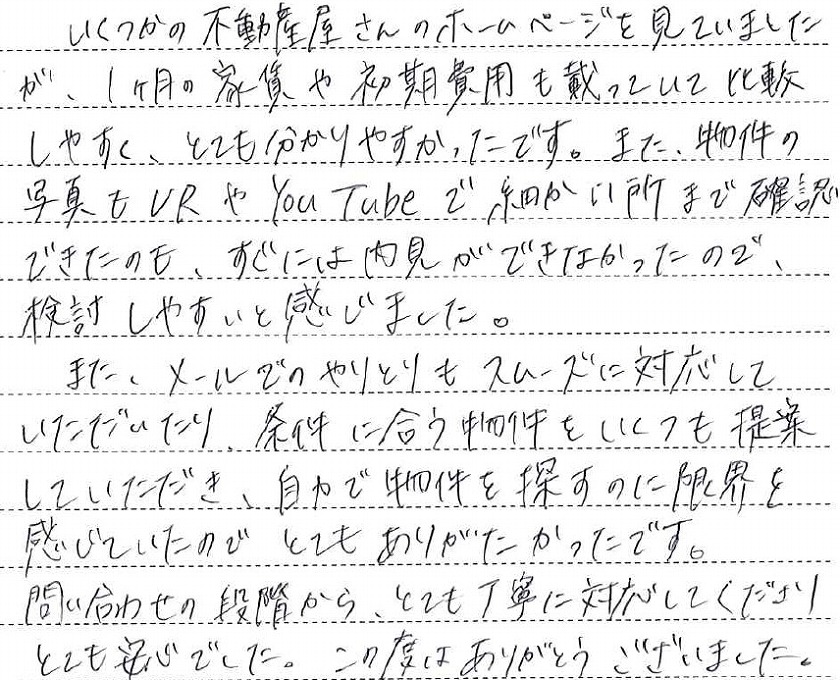 いくつかの不動産屋さんのホームページを見ていました
が、1ヶ月の家賃や初期費用も載っていて比較
しやすく、とても分かりやすかったです。また、物件の
写真もVRやYouTubeで細かい所まで確認
できたのも、すぐには内見ができなかったので、
検討しやすいと感じました。
また、メールでのやりとりもスムーズに対応して
いただいたり、条件に合う物件をいくつも提案
していただき、自力で物件を探すのに限界を
感じていたのでとてもありがたかったです。
問い合わせの段階から、とても丁寧に対応してくださり
とても安心でした。この度はありがとうございました。